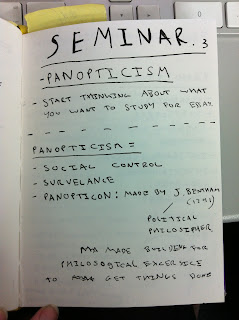 SEMINAR. 3
- PANOPTICISM
- START THINKING ABOUT WHAT
YOU WANT TO STUDY FOR
PANOPTICISM =
- SOCIAL CONTROL
- SURVELANCE
- PANOPTICON: MADE BY J. BENTHAM
(1791)
POLITICAL
PHILOSIPHER
MADE BUILDING FOR
PHILOSOGICAL EXCERSICE
TO GET THINGS DONE